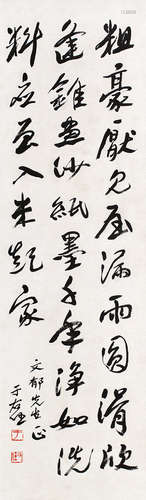 粗豪厭見屋漏雨圓滑欣
逢錐畫沙紙墨千年淨如洗
料应曾入米顛家
文郁先生正
于右任